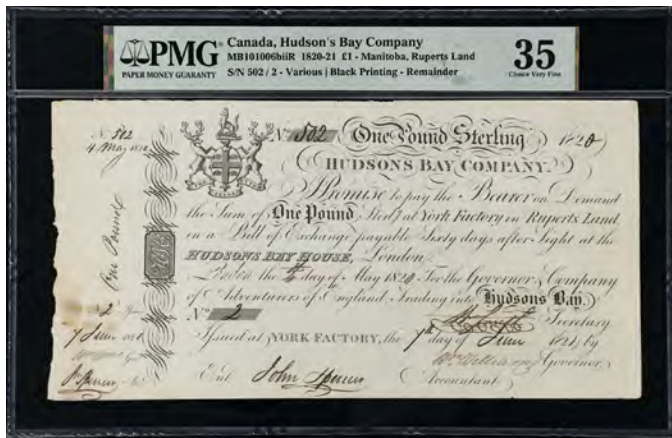 PMG
PAPER MONEY GUARANTY
Canada, Hudson's Bay Company
MB101006biiR 1820-21 £1 - Manitoba, Ruperts Land
S/N 502 / 2 - Various | Black Printing - Remainder
35
Choice Very Fine
No 502
4 May 1820
One Pound
2
7 June 1821
No 502 One Pound Sterling 1820
HUDSONS BAY COMPANY.
Promise to pay the Bearer on Demand
the Sum of One Pound Sterlg at York Factory in Ruperts Land
in a Bill of Exchange payable Sixty days after Sight at the
HUDSONS BAY HOUSE, London
London the 4 day of May 1820 For the Governor & Company
of Adventurers of England Trading into Hudsons Bay.
No 2 Secretary
Issued at YORK FACTORY, the 7th day of June 1821 by
Wm Williams Governor
Ent John Spencer Accountant